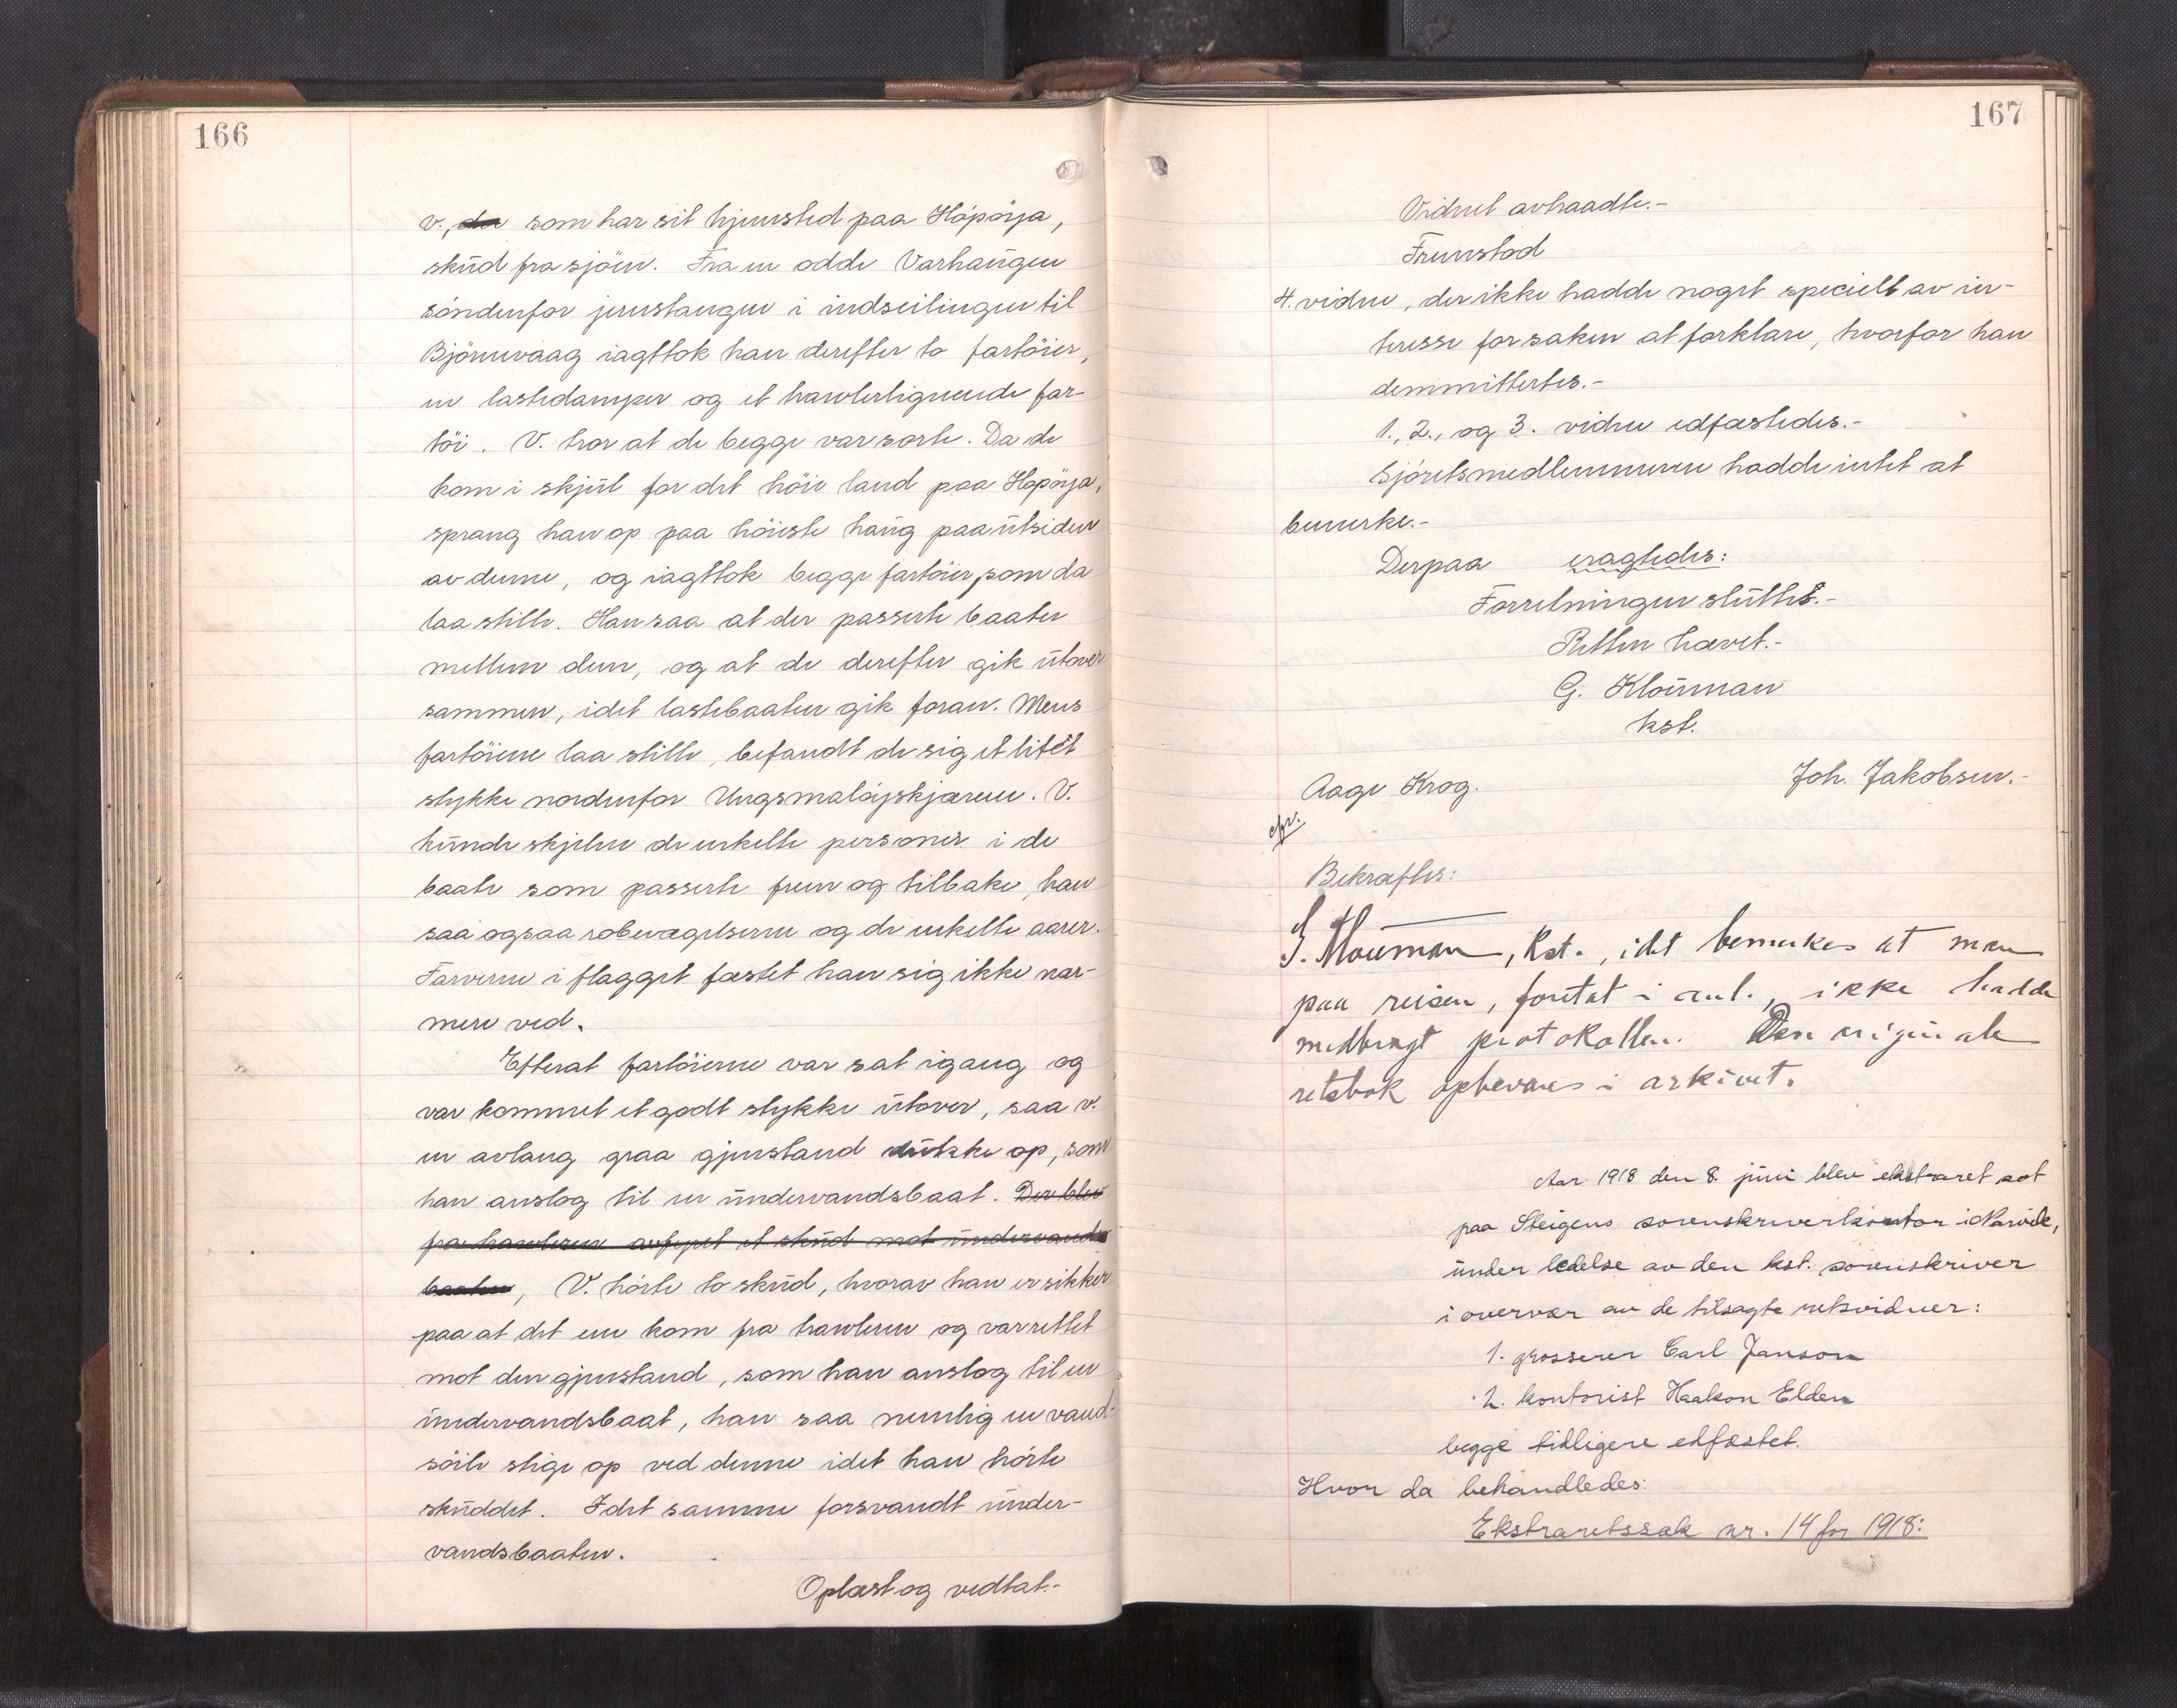 166
v., da som har sit hjemsted paa Hópöya,
skud fra sjöen. Fra en odde Varhaugen
söndenfor jernstangen i indseilingen til
Björnevaag iagttok han derefter to fartöier,
en lastedamper og et trawlerlignende far-
töi. V. tror at de begge var sorte. Da de
kom i skjul for det höie land paa Hopöya,
sprang han op paa höieste haug paa utsiden
av denne, og iagttok begge fartöier, som da
laa stille. Han saa at der passerte baater
mellem dem, og at de derefter gik utover
sammen, idet lastebaaten gik foran. Mens
fartöiene laa stille, befandt de sig et litet
stykke nordenfor Ungsmalöyskjærene. V.
kunde skjelne de enkelte personer i de
baate som passerte frem og tilbake, han
saa ogsaa robevægelserne og de enkelte aarer.
Farverne i flagget fæstet han sig ikke nær-
mere ved.
Efterat fartöierne var sat igang og
var kommet et godt stykke utover, saa v.
en avlang graa gjenstand dukke op, som
han anslog til en undervandsbaat. Der blev
fra trawleren avfyret et skud mot undervands
baaten, V. hörte to skud, hvorav han er sikker
paa at det ene kom fra trawleren og var rettet
mot den gjenstand, som han anslog til en
undervandsbaat, han saa nemlig en vand-
söile stige op ved denne idet han hörte
skuddet. I det samme forsvandt under-
vandsbaaten.
Oplæst og vedtat.-
167
Vidnet avhaadte.-
Fremstod
4. vidne, der ikke hadde noget specielt av in-
teresse for saken at forklare, hvorfor han
demmittertes.-
1., 2., og 3. vidne edfæstedes.-
Sjöretsmedlemmerne hadde intet at
bemerke.-
Derpaa eragtedes:
Forretningen sluttet.-
Retten hævet.-
G. Klouman
kst.
Aage Krog. Joh. Jakobsen.-
Bekræftes:
G. Klouman, kst., idet bemerkes at man
paa reisen, foretat i anl., ikke hadde
medbragt protokollen. Den originale
retsbok opbevares i arkivet.
Aar 1918 den 8. juni blev ekstraret sat
paa Steigens sorenskriverkontor i Narvik,
under ledelse av den kst. sorenskriver
i overvær av de tilsagte retsvidner:
1. grosserer Carl Janson
2. kontorist Haakon Elden
begge tidligere edfæstet.
Hvor da behandledes:
Ekstraretssak nr. 14 for 1918: